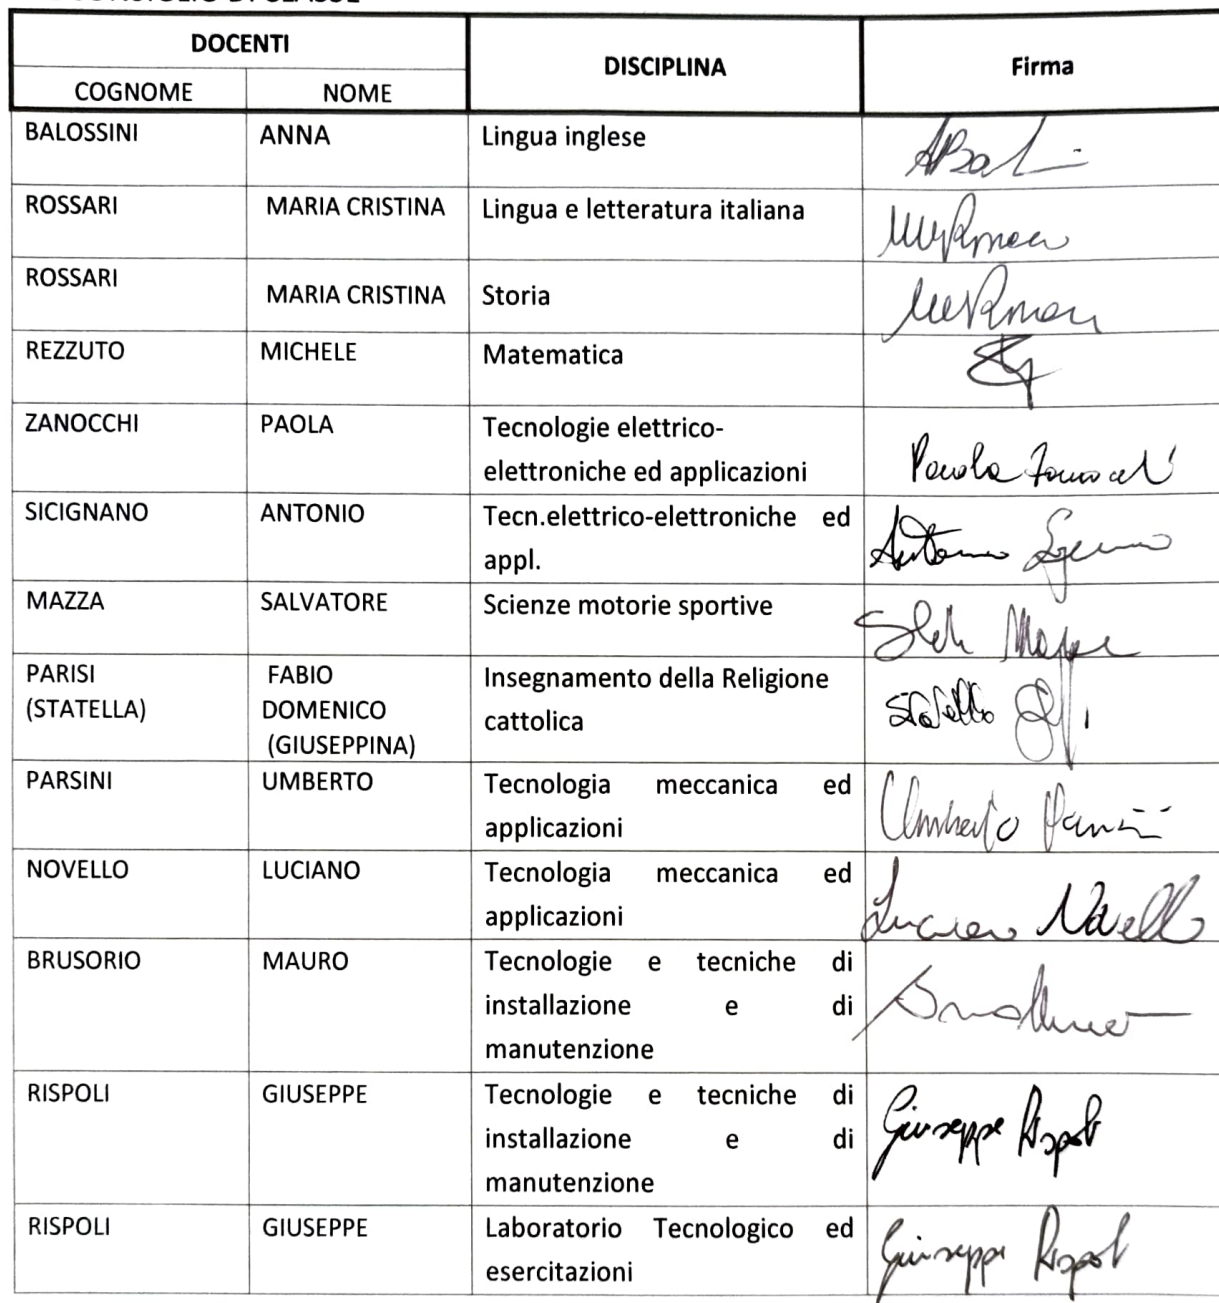 CONSIGLIO DI CLASSE
DOCENTI
DISCIPLINA
Firma
COGNOME
NOME
BALOSSINI
ANNA
Lingua inglese
ROSSARI
MARIA CRISTINA
Lingua e letteratura italiana
ROSSARI
MARIA CRISTINA
Storia
REZZUTO
MICHELE
Matematica
ZANOCCHI
PAOLA
Tecnologie elettrico-
elettroniche ed applicazioni
Paola
SICIGNANO
ANTONIO
Tecn.elettrico-elettroniche ed
appl.
Antonio
MAZZA
SALVATORE
Scienze motorie sportive
PARISI
(STATELLA)
FABIO
DOMENICO
(GIUSEPPINA)
Insegnamento della Religione
cattolica
PARSINI
UMBERTO
Tecnologia meccanica ed
applicazioni
Umberto Parsini
NOVELLO
LUCIANO
Tecnologia meccanica ed
applicazioni
Luciano Novello
BRUSORIO
MAURO
Tecnologie e tecniche di
installazione e di
manutenzione
RISPOLI
GIUSEPPE
Tecnologie e tecniche di
installazione e di
manutenzione
Giuseppe Rispoli
RISPOLI
GIUSEPPE
Laboratorio Tecnologico ed
esercitazioni
Giuseppe Rispoli